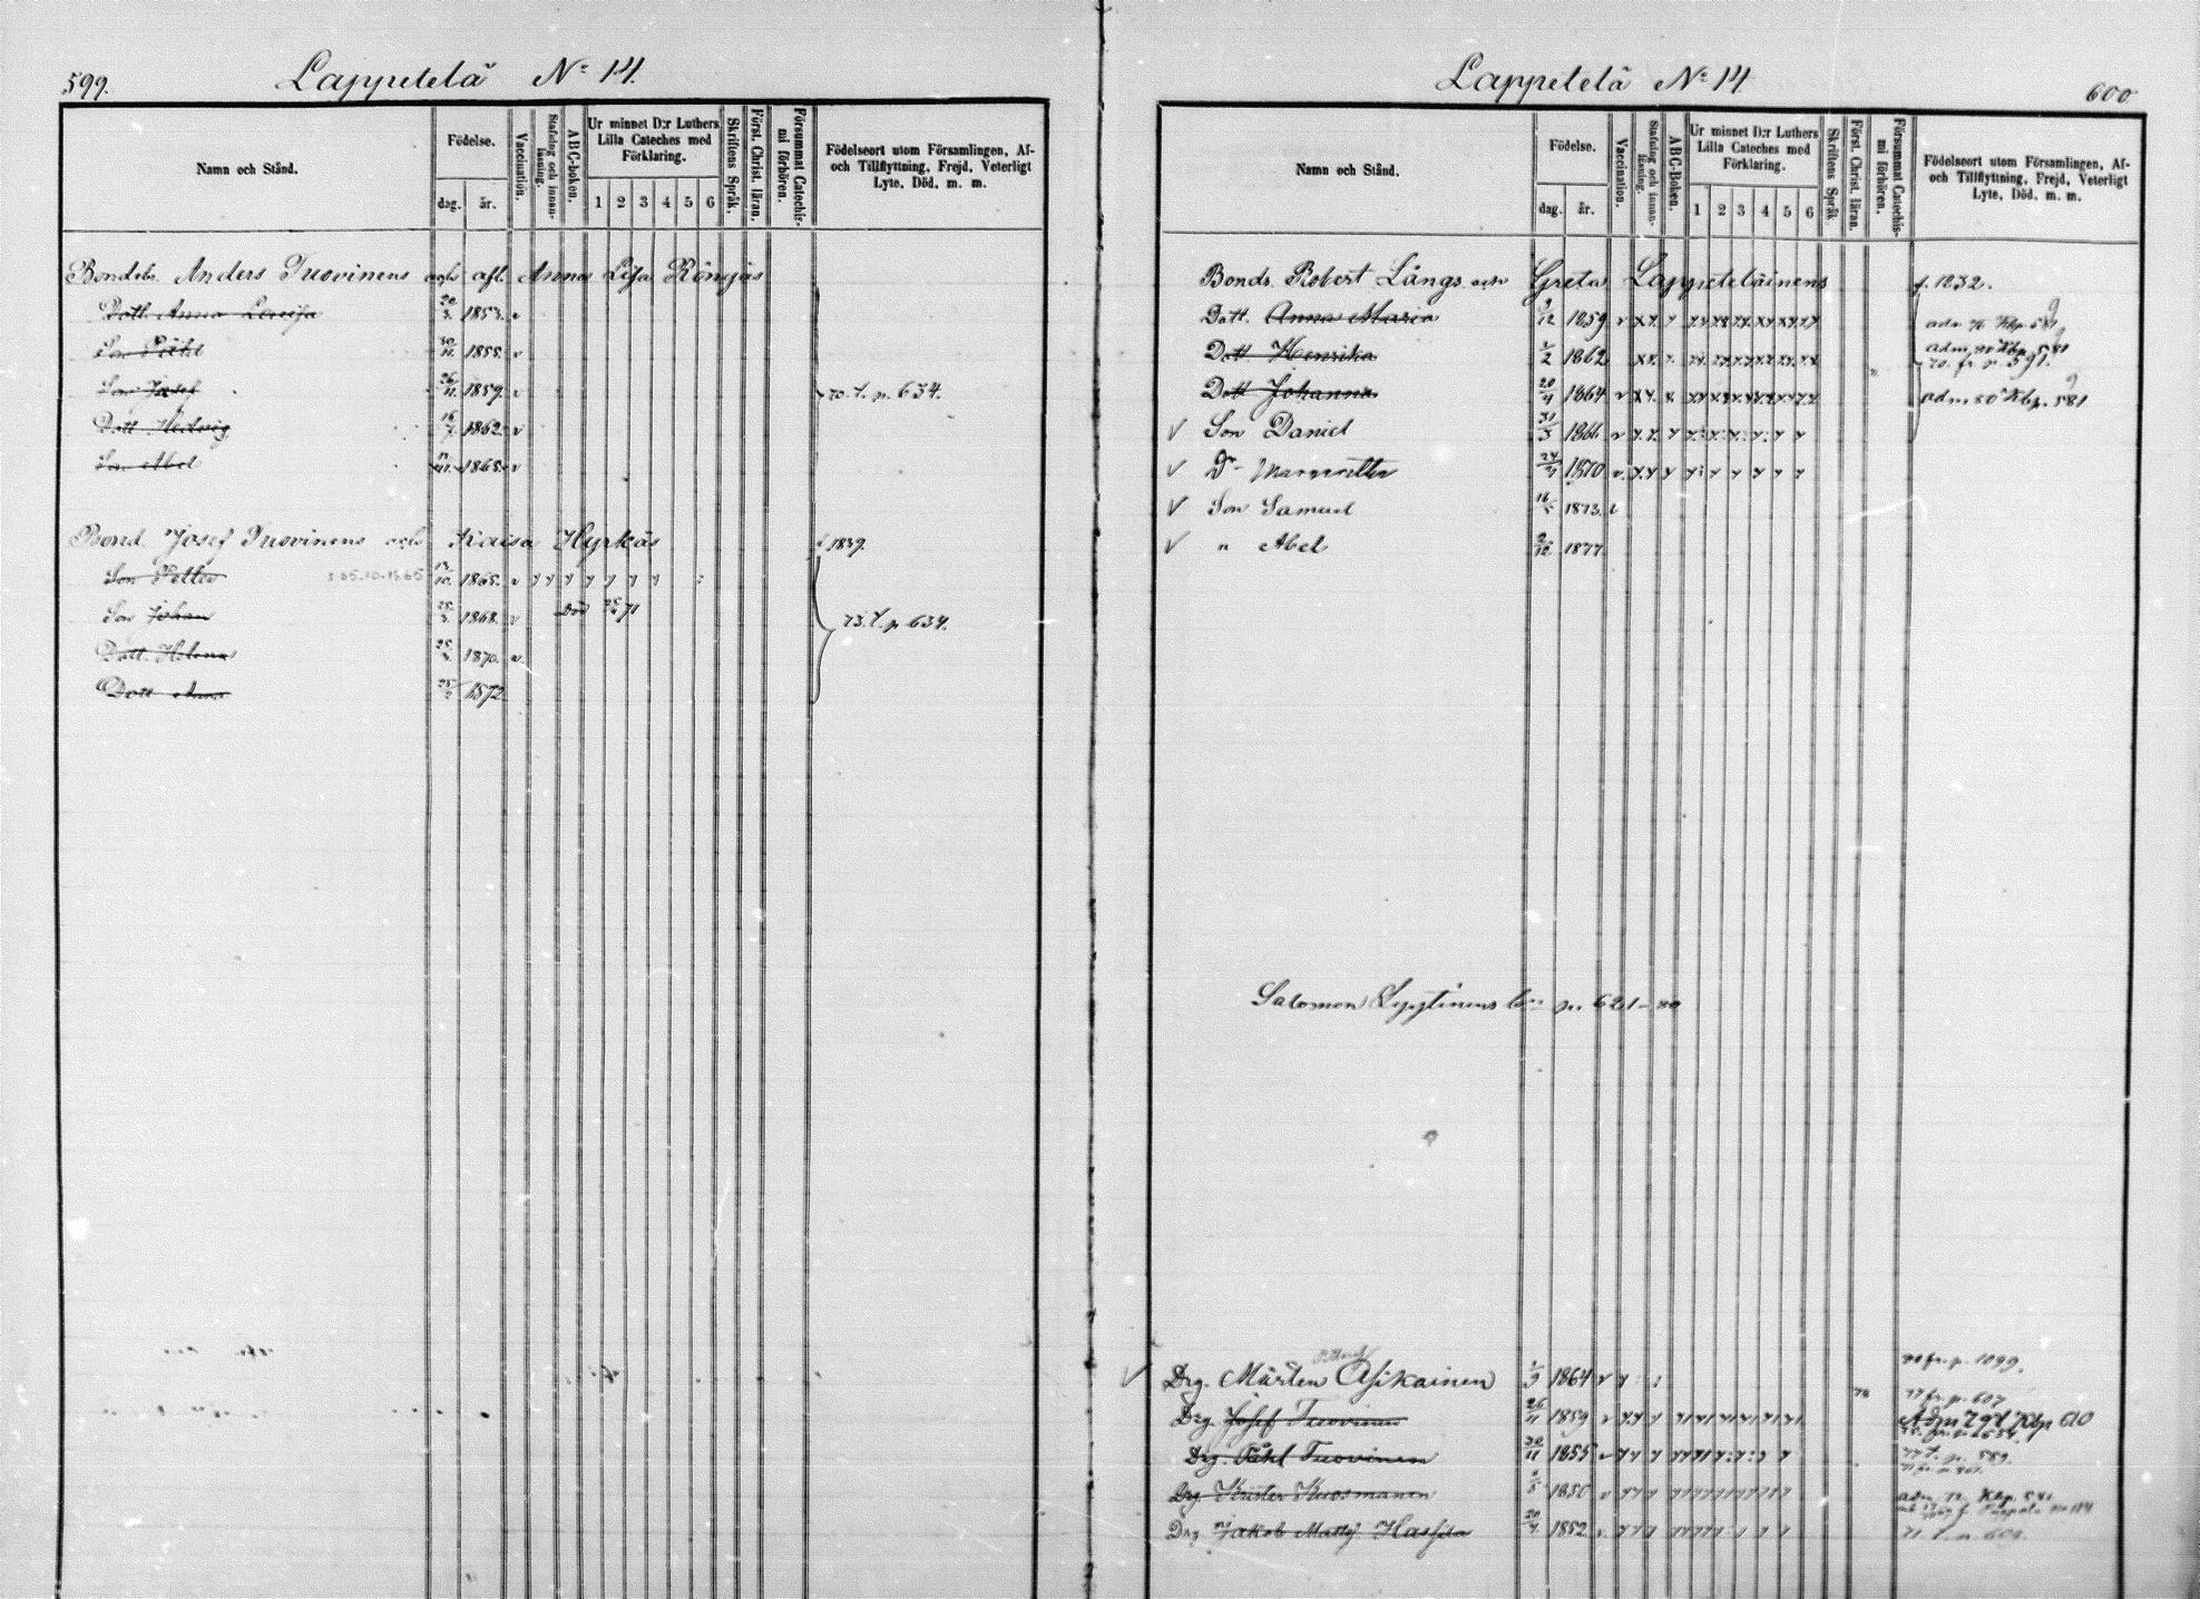 599.
Lappetelä No 14.
Namn och Stånd.
Födelse.
dag.
år.
Vaccination.
Stafning och innan-läsning.
ABC-boken.
Ur minnet D:r Luthers Lilla Cateches med Förklaring.
1 2 3 4 5 6
Skriftens Språk.
Först. Christ. läran.
Försummat Catechis-mi förhören.
Födelseort utom Församlingen, Af- och Tillflyttning, Frejd, Veterligt Lyte, Död, m. m.
Anders Tuovinens och afl. Anna Lisa
Dott. Anna Lovisa 20/3. 1853. v
Son Påhl 30/11. 1855. v
Son Josef 26/11. 1859. v 70. t. p. 634.
Dott Hedvig 16/7. 1862. v
Son Abel 1865. v
Bond. Josef Tuovinens och Kaisa Hyrkäs f. 1839.
Son Petter 13/10. 1865. v
Son Johan 1868. v Död 71
Dott. Helena 25/3. 1870. v 73. t. p 634.
Dott Anna 1872
Lappetelä No 14
600
Namn och Stånd.
Födelse.
dag.
år.
Vaccination.
Stafning och innan-läsning.
ABC-Boken.
Ur minnet D:r Luthers Lilla Cateches med Förklaring.
1 2 3 4 5 6
Skriftens Språk.
Först. Christ. läran.
Försummat Catechis-mi förhören.
Födelseort utom Församlingen, Af- och Tillflyttning, Frejd, Veterligt Lyte, Död, m. m.
Bonds. Robert Långs och Greta Lappeteläinens f. 1832.
Dott. Anna Maria 9/12 1859 adm 76 Kbp. 581
Dott Henrika 1/2 1862 adm 80 Kbp 581
70. fr p 591.
Dott Johanna 20/4 1864 adm 80 Kbp. 581
Son Daniel 31/3 1866
Dr Margaretha 24/4 1870
Son Samuel 16/5 1873. v
" Abel 2/12 1877
Salomon p. 621-
Drg. Mårten Asikainen 1/3 1864 fr. p. 1099.
77 fr. p. 607
Drg. Josef Tuovinen 26/11 1859 Adm 79 Kbp 610
Drg. Påhl Tuovinen 30/11 1855 77 t. p. 589.
Drg. Petter Kuosmanen 1850 adm 72. Kbp. 581
Drg Jakob Matts. 20/4. 1852 71 t. p. 609.